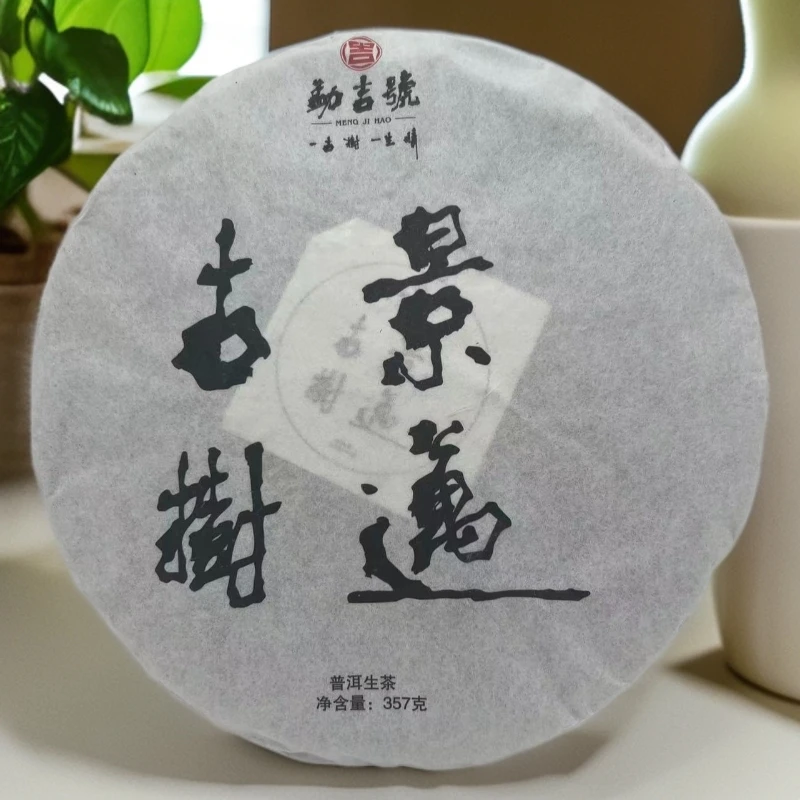 勐吉號
MENG JI HAO
一古樹一生情
景邁
古樹
普洱生茶
净含量：357克